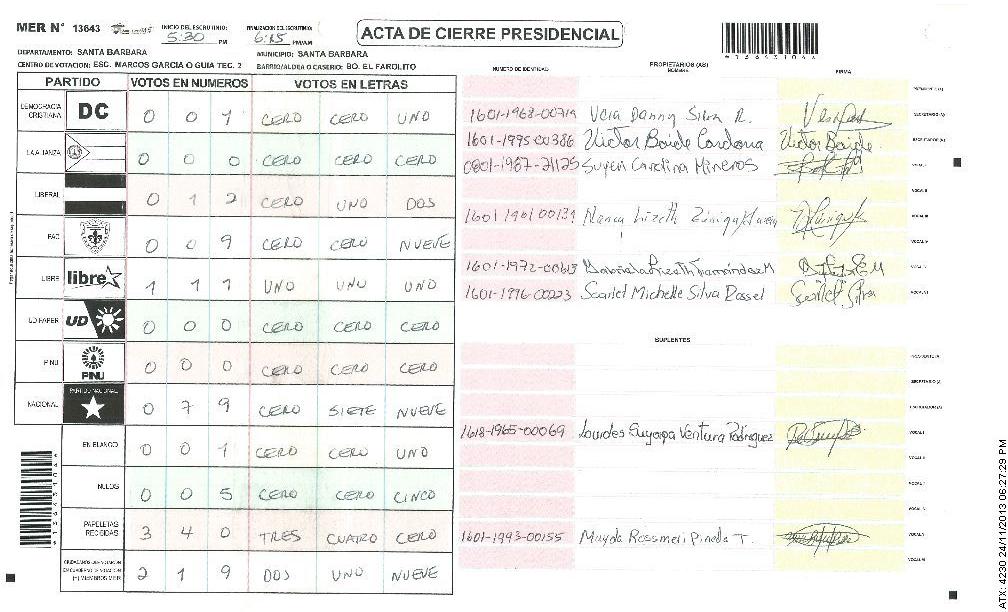 MER N° 13643 INICIO DEL ESCRUTINIO: 5:30 PM FINALIZACION DEL ESCRUTINIO: 6:15 PM/AM
ACTA DE CIERRE PRESIDENCIAL
DEPARTAMENTO: SANTA BARBARA MUNICIPIO: SANTA BARBARA
CENTRO DE VOTACION: ESC. MARCOS GARCIA O GUIA TEC. 2 BARRIO/ALDEA O CASERIO: BO. EL FAROLITO
PARTIDO VOTOS EN NUMEROS VOTOS EN LETRAS
DEMOCRACIA CRISTIANA DC 0 0 1 CERO CERO UNO
LA ALIANZA 0 0 0 CERO CERO CERO
LIBERAL 0 1 2 CERO UNO DOS
PAC 0 0 9 CERO CERO NUEVE
LIBRE libre 1 1 1 UNO UNO UNO
UD FAPER UD 0 0 0 CERO CERO CERO
PINU PINU 0 0 0 CERO CERO CERO
NACIONAL PARTIDO NACIONAL 0 7 9 CERO SIETE NUEVE
EN BLANCO 0 0 1 CERO CERO UNO
NULOS 0 0 5 CERO CERO CINCO
PAPELETAS RECIBIDAS 3 4 0 TRES CUATRO CERO
CIUDADANOS QUE VOTARON EN CUADERNO DE VOTACION (+) MIEMBROS MER 2 1 9 DOS UNO NUEVE
NUMERO DE IDENTIDAD PROPIETARIOS (AS) NOMBRE FIRMA
PRESIDENTE (A)
1601-1968-00719 Danny Silva R. SECRETARIO (A)
1601-1995-00386 Victor Baide Cardona Victor Baide ESCRUTADOR (A)
0801-1987-21125 Suyen Carolina Mineros VOCAL I
VOCAL II
1601 1961 00139 Nancy Lizeth Zuniga VOCAL III
VOCAL IV
1601-1972-00613 Gabriela Lizeth Fernández M VOCAL V
1601-1996-00223 Scarlet Michelle Silva Rossel Scarlet Silva VOCAL VI
SUPLENTES
PRESIDENTE (A)
SECRETARIO (A)
ESCRUTADOR (A)
1618-1965-00069 Lourdes Suyapa Ventura Rodriguez VOCAL I
VOCAL II
1601-1993-00155 Mayda Rossmeri Pineda T.
ATX: 4230 24/11/2013 06:27:29 PM